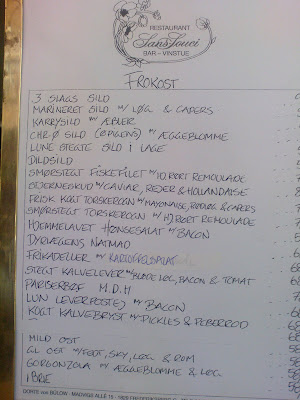 RESTAURANT
Sans Souci
BAR - VINSTUE
FROKOST
3 SLAGS SILD
MARINERET SILD M/ LØG & CAPERS
KARRYSILD M/ ÆBLER
CHR.Ø SILD (ØRGENS) M/ ÆGGEBLOMME
LUNE STEGTE SILD I LAGE
DILDSILD
SMØRSTEGT FISKEFILET M/ HJ.RØRT REMOULADE
STJERNESKUD M/ CAVIAR, REJER & HOLLANDAISE
FRISK KOGT TORSKEROGN M/ MAYONAISE, RØDLØG & CAPERS
SMØRSTEGT TORSKEROGN M/ HJ.RØRT REMOULADE
HJEMMELAVET HØNSESALAT M/ BACON
DYRLÆGENS NATMAD
FRIKADELLER M/ KARTOFFELSALAT
STEGT KALVELEVER M/ BLØDE LØG, BACON & TOMAT
PARISERBØF M.D.H
LUN LEVERPOSTEJ M/ BACON
KOGT KALVEBRYST M/ PICKLES & PEBERROD
MILD OST
GL OST M/ FEDT, SKY, LØG & ROM
GORGONZOLA M/ ÆGGEBLOMME & LØG
BRIE
DORTE von BÜLOW - MADVIGS ALLE 15 -